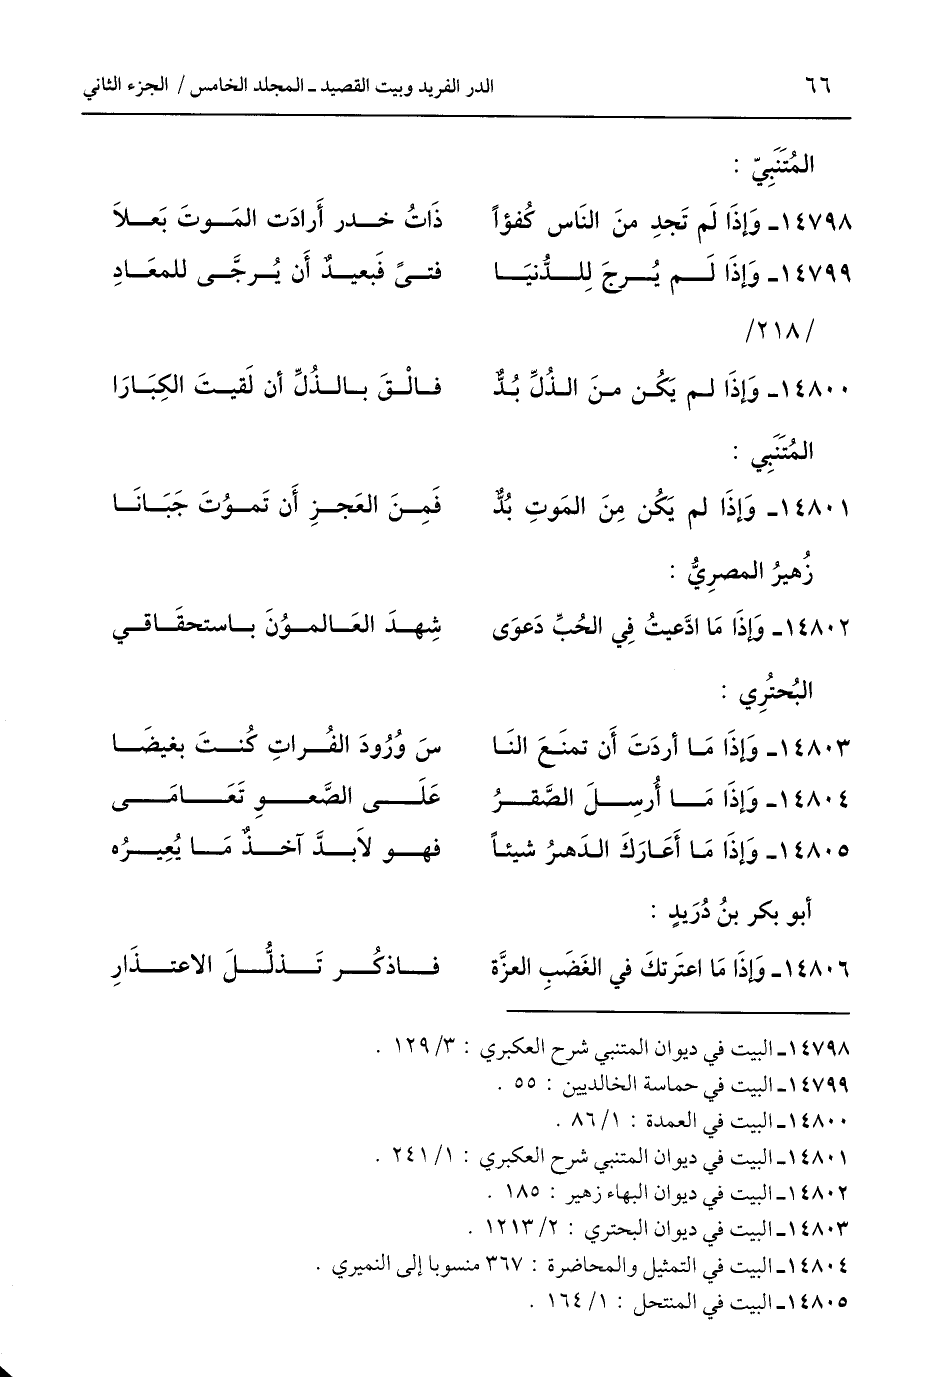 ٦٦ الدر الفريد وبيت القصيد ـ المجلد الخامس / الجزء الثاني
المُتَنَبِيّ :
١٤٧٩٨ـ وَإذَا لَم تَجدِ منَ النَاس كُفؤاً ذَاتُ خـدر أَرادَت المَـوتَ بَعـلاَ
١٤٧٩٩ـ وَإذَا لَـم يُـرجَ لِلـدُّنيَـا فتـىً فَبعيـدٌ أَن يُـرجَّـى للمعَـادِ
/٢١٨/
١٤٨٠٠ـ وَإذَا لـم يَكُـن مـنَ الـذُلِّ بُـدٌّ فـالْـقَ بـالـذُلِّ أن لَقيـتَ الكِبَـارَا
المُتَنَبِي :
١٤٨٠١ـ وَإذَا لم يَكُن مِنَ المَوتِ بُدٌّ فَمِـنَ العَجـزِ أَن تَمـوُتَ جَبَـانَـا
زُهيرُ المصرِيُّ :
١٤٨٠٢ـ وَإذَا مَا ادَّعيتُ فِي الحُبِّ دَعوَى شِهـدَ العَـالمـوُنَ بـاستحقَـاقـي
البُحتُرِي :
١٤٨٠٣ـ وَإذَا مَـا أردَتَ أَن تمنَـعَ النَـا سَ وُرُودَ الفُـراتِ كُنـتَ بغيضَـا
١٤٨٠٤ـ وَإذَا مَـا أُرسِـلَ الصَّقـرُ عَلَـى الصَّعـوِ تَعَـامَـى
١٤٨٠٥ـ وَإذَا مَـا أَعَـارَكَ الـدَهـرُ شيئـاً فهـو لاَبـدَّ آخـذٌ مَـا يُعِيـرُه
أبو بكر بنُ دُرَيدٍ :
١٤٨٠٦ـ وَإذَا مَا اعتَرتكَ في الغَضَبِ العزَّة فـاذكُـر تَـذلُّـلَ الاعتـذَارِ
١٤٧٩٨ـ البيت في ديوان المتنبي شرح العكبري : ٣/ ١٢٩ .
١٤٧٩٩ـ البيت في حماسة الخالديين : ٥٥ .
١٤٨٠٠ـ البيت في العمدة : ١/ ٨٦ .
١٤٨٠١ـ البيت في ديوان المتنبي شرح العكبري : ١/ ٢٤١ .
١٤٨٠٢ـ البيت في ديوان البهاء زهير : ١٨٥ .
١٤٨٠٣ـ البيت في ديوان البحتري : ٢/ ١٢١٣ .
١٤٨٠٤ـ البيت في التمثيل والمحاضرة : ٣٦٧ منسوبا إلى النميري .
١٤٨٠٥ـ البيت في المنتحل : ١/ ١٦٤ .